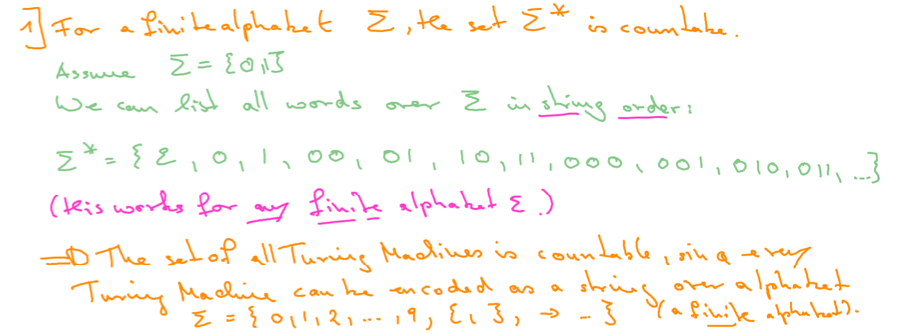 1] For a finite alphabet Σ, the set Σ* is countable.
Assume Σ = {0,1}
We can list all words over Σ in string order:
Σ* = { ε, 0, 1, 00, 01, 10, 11, 000, 001, 010, 011, ...}
(this works for any finite alphabet Σ.)
⇒ The set of all Turing Machines is countable, since every
Turing Machine can be encoded as a string over alphabet
Σ = {0,1,2,...,9, {, }, → ... } (a finite alphabet).